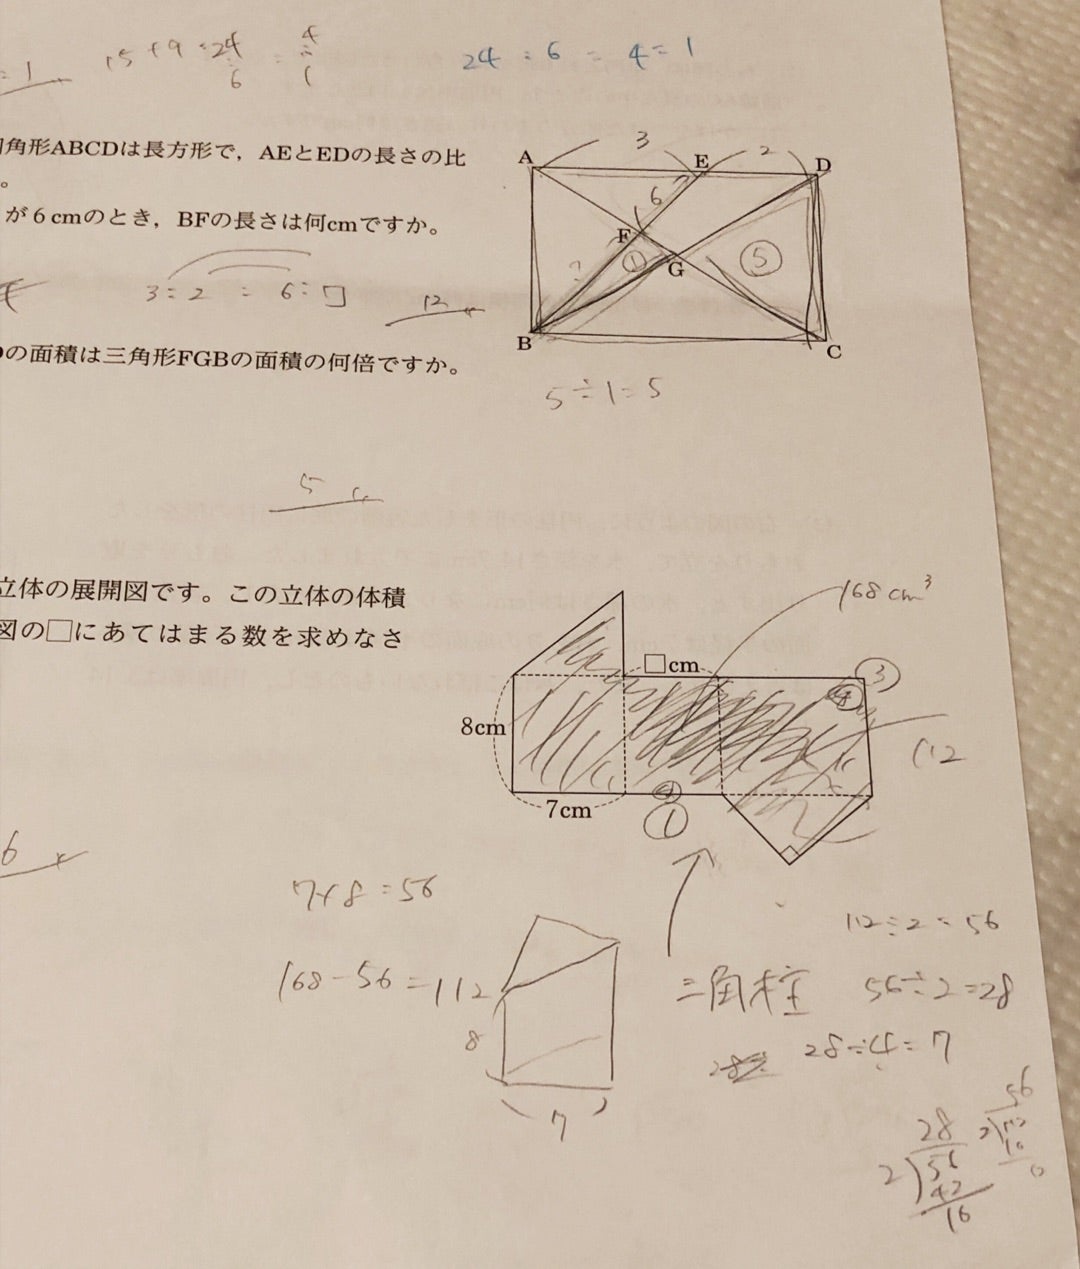 = 1
15 + 9 = 24
6
4
1
24 : 6 = 4 = 1
角形ABCDは長方形で，AEとEDの長さの比
。
が6cmのとき，BFの長さは何cmですか。
3 : 2 = 6 : □
12
の面積は三角形FGBの面積の何倍ですか。
A
3
E
2
D
6
F
①
G
⑤
?
B
C
5 ÷ 1 = 5
5
立体の展開図です。この立体の体積
図の□にあてはまる数を求めなさ
168 cm³
□cm
③
④
8cm
112
7cm
①
6
7×8 = 56
168 - 56 = 112
8
7
三角柱
112 ÷ 2 = 56
56 ÷ 2 = 28
28 ÷ 4 = 7
28
2)56
42
16
56